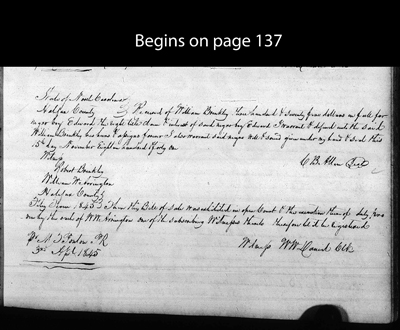 Begins on page 137
State of North Carolina
Halifax County Received of William Brinkley four hundred & Seventy five dollars in full for
negro boy Edward the right title claim & interest of said negro boy Edward I warrant & defend unto the said
William Brinkley his heirs & assigns forever I also warrant said negro well & sound given under my hand & seal this
15th day November Eighteen hundred & forty
C. B. Allen Seal
Witness
Robert Brinkley
William W. Arrington
Halifax County
Then this Bill of Sale was exhibited in open Court & the execution thereof duly
by the oath of W W Arrington one of the subscribing Witnesses thereto therefore let it be registered
Witness W W Daniel Clk
3rd Apl 1845